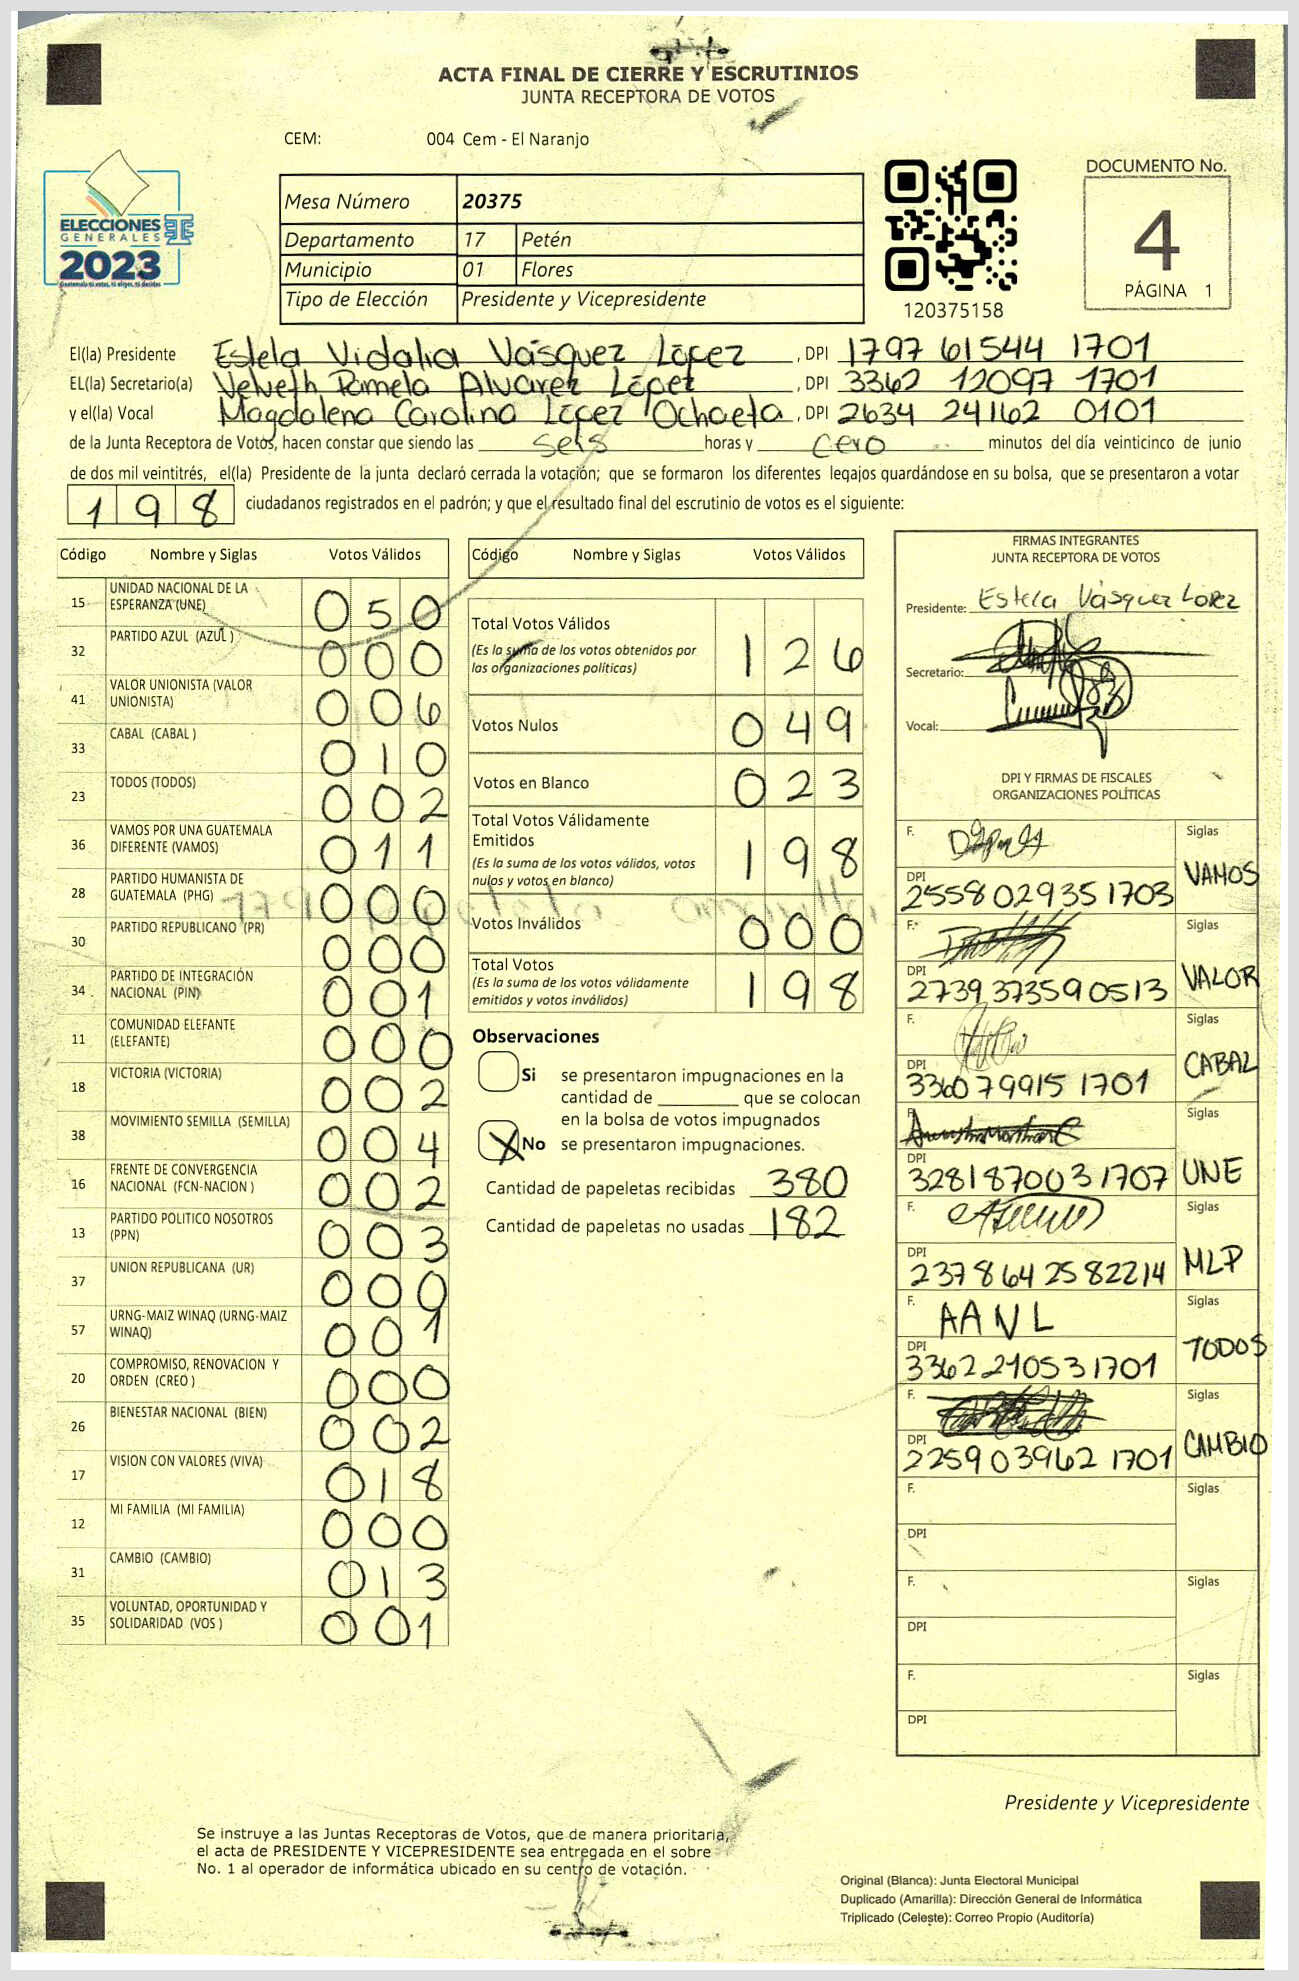 ACTA FINAL DE CIERRE Y ESCRUTINIOS
JUNTA RECEPTORA DE VOTOS
CEM: 004 Cem - El Naranjo
ELECCIONES
GENERALES
2023
Mesa Número 20375
Departamento 17 Petén
Municipio 01 Flores
Tipo de Elección Presidente y Vicepresidente
120375158
DOCUMENTO No.
4
PÁGINA 1
El(la) Presidente Estela Vidalia Vásquez López, DPI 1797 61544 1701
EL(la) Secretario(a) Velveth Pamela Alvarez López, DPI 3362 12097 1701
y el(la) Vocal Magdalena Carolina López Ochaeta, DPI 2634 24162 0101
de la Junta Receptora de Votos, hacen constar que siendo las seis horas y cero minutos del día veinticinco de junio
de dos mil veintitrés, el(la) Presidente de la junta declaró cerrada la votación; que se formaron los diferentes legajos guardándose en su bolsa, que se presentaron a votar
198 ciudadanos registrados en el padrón; y que el resultado final del escrutinio de votos es el siguiente:
Código Nombre y Siglas Votos Válidos
15 UNIDAD NACIONAL DE LA ESPERANZA (UNE) 050
32 PARTIDO AZUL (AZUL ) 000
41 VALOR UNIONISTA (VALOR UNIONISTA) 006
33 CABAL (CABAL ) 010
23 TODOS (TODOS) 002
36 VAMOS POR UNA GUATEMALA DIFERENTE (VAMOS) 011
28 PARTIDO HUMANISTA DE GUATEMALA (PHG) 000
30 PARTIDO REPUBLICANO (PR) 000
34 PARTIDO DE INTEGRACIÓN NACIONAL (PIN) 001
11 COMUNIDAD ELEFANTE (ELEFANTE) 000
18 VICTORIA (VICTORIA) 002
38 MOVIMIENTO SEMILLA (SEMILLA) 004
16 FRENTE DE CONVERGENCIA NACIONAL (FCN-NACION ) 002
13 PARTIDO POLITICO NOSOTROS (PPN) 003
37 UNION REPUBLICANA (UR) 000
57 URNG-MAIZ WINAQ (URNG-MAIZ WINAQ) 001
20 COMPROMISO, RENOVACION Y ORDEN (CREO ) 000
26 BIENESTAR NACIONAL (BIEN) 002
17 VISION CON VALORES (VIVA) 018
12 MI FAMILIA (MI FAMILIA) 000
31 CAMBIO (CAMBIO) 013
35 VOLUNTAD, OPORTUNIDAD Y SOLIDARIDAD (VOS ) 001
Código Nombre y Siglas Votos Válidos
Total Votos Válidos 126
(Es la suma de los votos obtenidos por
las organizaciones políticas)
Votos Nulos 049
Votos en Blanco 023
Total Votos Válidamente
Emitidos 198
(Es la suma de los votos válidos, votos
nulos y votos en blanco)
Votos Inválidos 000
Total Votos 198
(Es la suma de los votos válidamente
emitidos y votos inválidos)
Observaciones
Si se presentaron impugnaciones en la
cantidad de ________ que se colocan
en la bolsa de votos impugnados
X No se presentaron impugnaciones.
Cantidad de papeletas recibidas 380
Cantidad de papeletas no usadas 182
FIRMAS INTEGRANTES
JUNTA RECEPTORA DE VOTOS
Presidente: Estela Vásquez López
Secretario:
Vocal:
DPI Y FIRMAS DE FISCALES
ORGANIZACIONES POLÍTICAS
F. Siglas
DPI 2558029351703 VAMOS
F. Siglas
DPI 2739373590513 VALOR
F. Siglas
DPI 3360799151701 CABAL
F. Siglas
DPI 3281870031707 UNE
F. Siglas
DPI 2378642582214 MLP
F. AANL Siglas
DPI 3362210531701 TODOS
F. Siglas
DPI 2259039621701 CAMBIO
F. Siglas
DPI
F. Siglas
DPI
F. Siglas
DPI
Presidente y Vicepresidente
Se instruye a las Juntas Receptoras de Votos, que de manera prioritaria,
el acta de PRESIDENTE Y VICEPRESIDENTE sea entregada en el sobre
No. 1 al operador de informática ubicado en su centro de votación.
Original (Blanca): Junta Electoral Municipal
Duplicado (Amarilla): Dirección General de Informática
Triplicado (Celeste): Correo Propio (Auditoría)